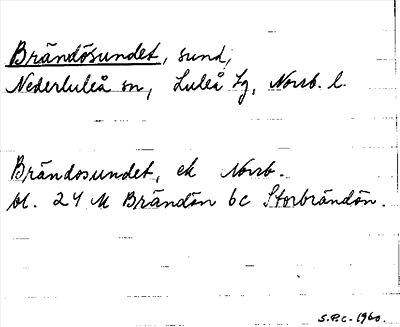 Brändösundet, sund,
Nederluleå sn, Luleå tg, Norrb. l.
Brändosundet, ek Norrb.
bl. 24 M Brändön bc Storbrändön.
S.P.C. 1960.